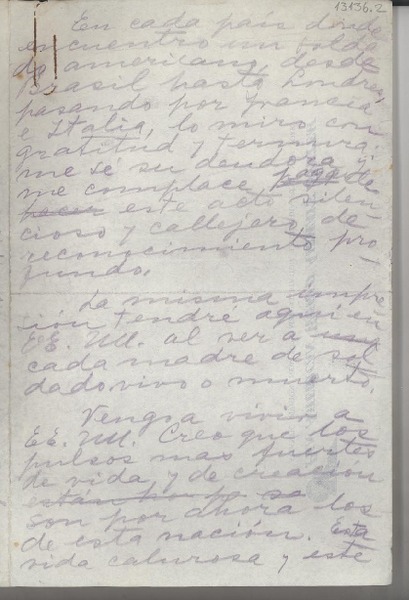 13136.2
En cada país donde
encuentro un solda
do americano, desde
Brasil hasta Londres,
pasando por Francia
e Italia, lo miro con
gratitud y ternura:
me sé su deudora y
me complace pagarle
hacer este acto silen
cioso y callejero de
reconocimiento pro-
fundo.
La misma impre
sión tendré aquí en
EE. UU. al ver a
cada madre de sol
dado vivo o muerto.
Vengo a vivir a
EE. UU. Creo que los
pulsos mas fuertes
de vida, y de creación
están por
son por ahora los
de esta nación. Esta
vida calurosa y este